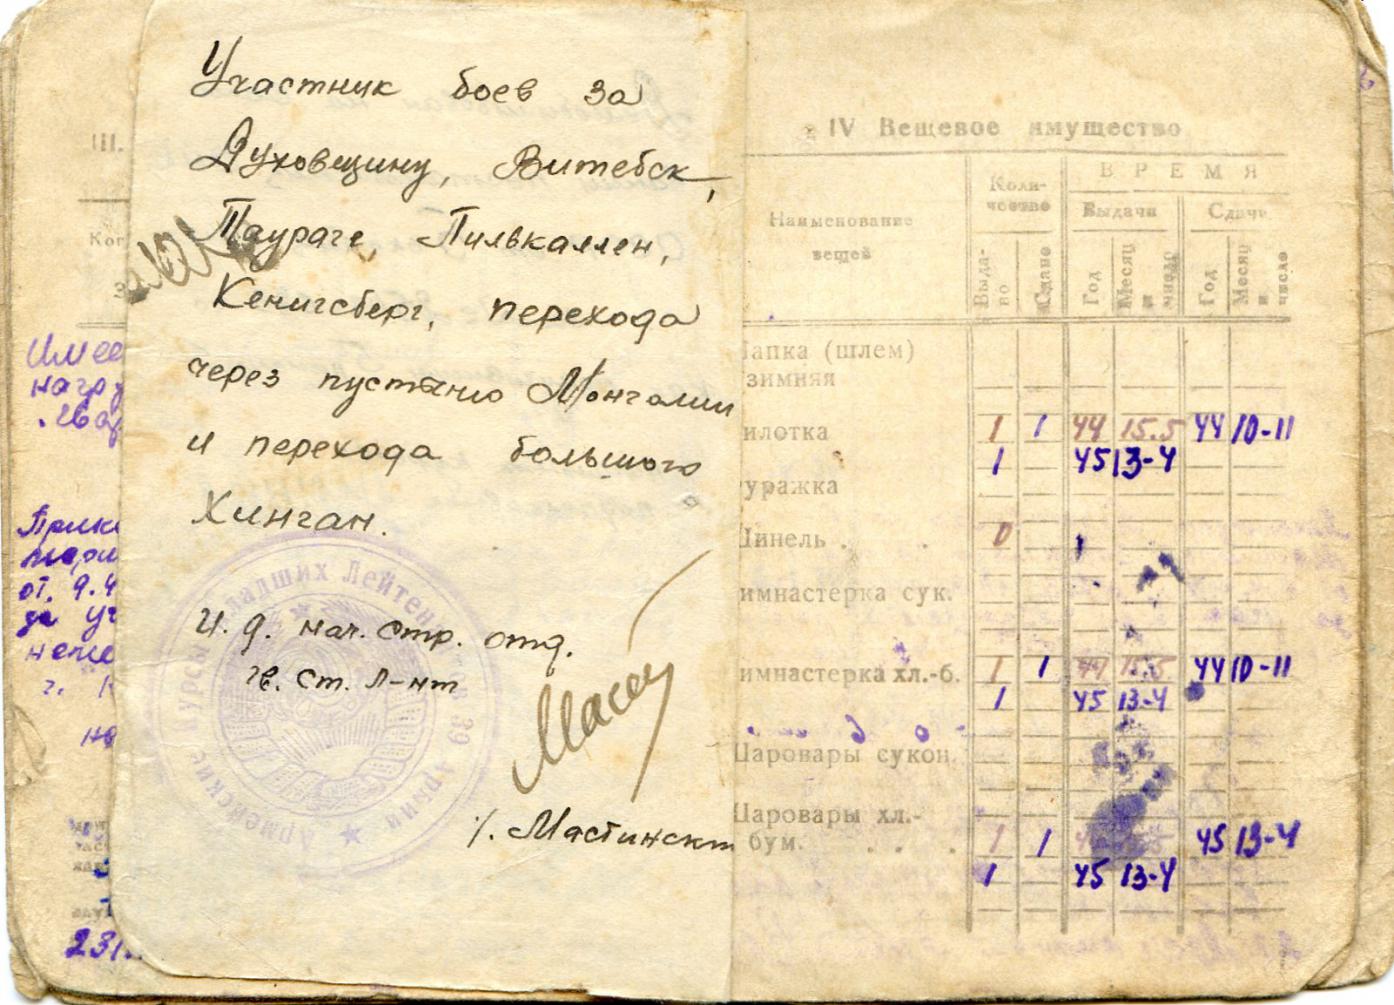 Участник боев за
Духовщину, Витебск,
Таураге Пилькаллен,
Кенигсберг, перехода
через пустыню Монголии
и перехода большого
Хинган.
И. д. нач. стр. отд.
гв. ст. л-нт
/. Мастинск
Армейские Курсы Младших Лейтенантов 39 Армии
III.
Ког
Имее
нагр
от. 9.4
за уч
неме
г.
231.
IV Вещевое имущество
Наименование вещей
Количество
ВРЕМЯ
Выдачи
Сдачи
Выдано
Сдано
Год
Месяц и число
Год
Месяц и число
апка (шлем)
зимняя
илотка 1 1 44 15.5 44 10-11
1 45 13-4
уражка
инель .
имнастерка сук.
имнастерка хл.-б. 1 1 44 15.5 44 10-11
1 45 13-4
Шаровары сукон.
Шаровары хл.-
бум. 1 1 45 13-4
1 45 13-4